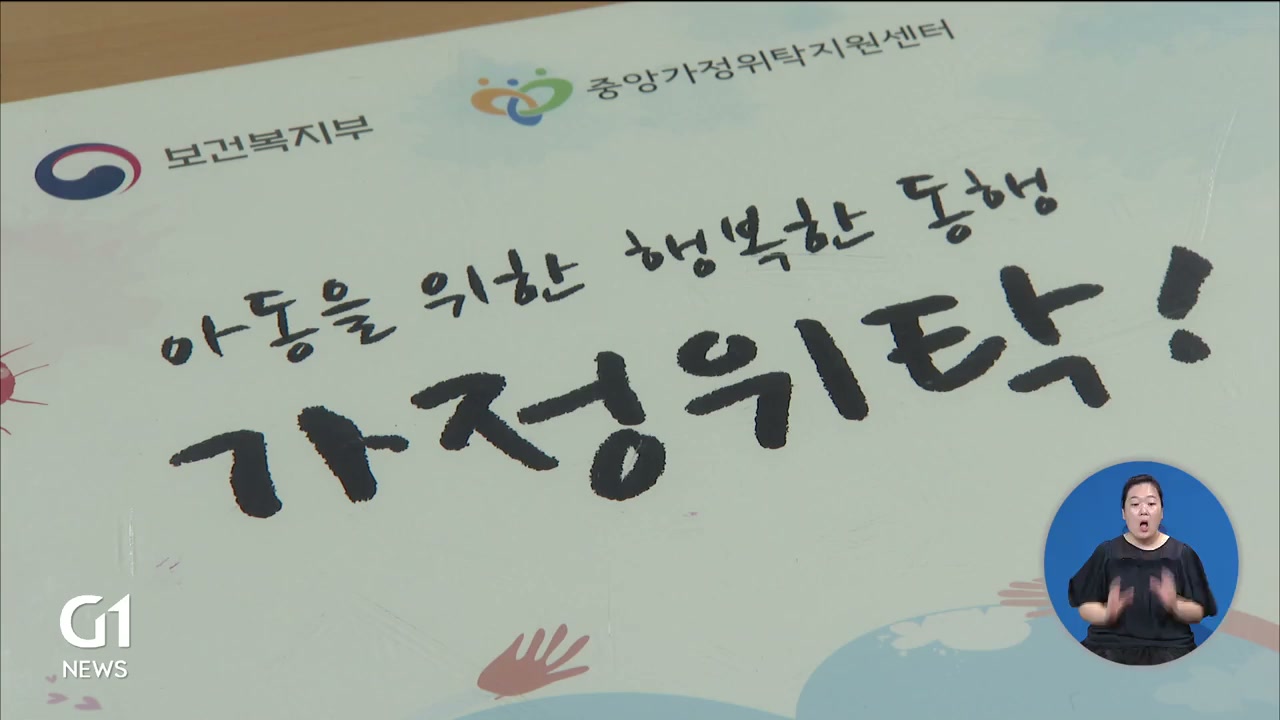 보건복지부
중앙가정위탁지원센터
아동을 위한 행복한 동행
가정위탁!
G1
NEWS